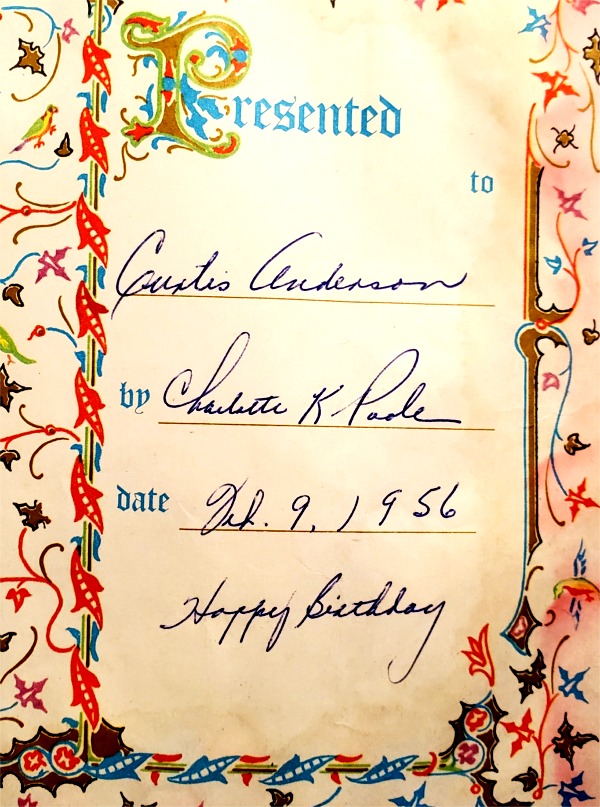 Presented
to
Curtis Anderson
by Charlotte K Poole
date Feb. 9, 1956
Happy Birthday